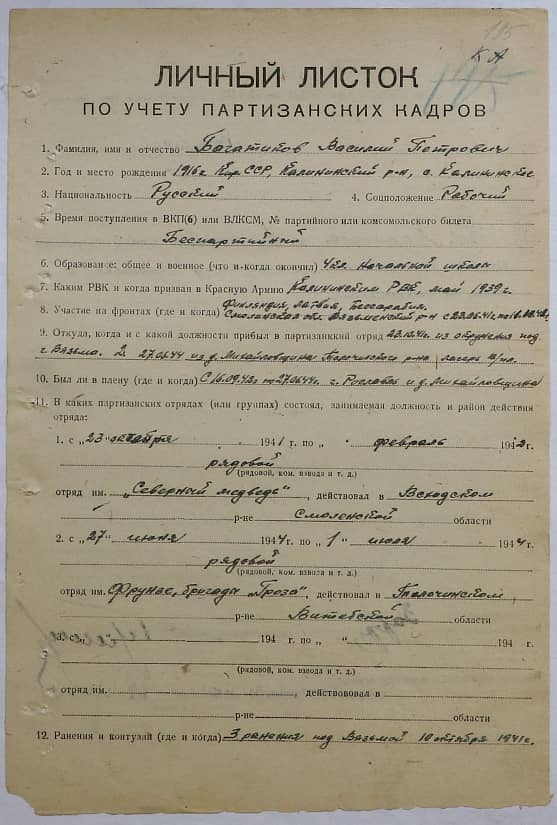 195
КА
ЛИЧНЫЙ ЛИСТОК
ПО УЧЕТУ ПАРТИЗАНСКИХ КАДРОВ
1. Фамилия, имя и отчество Богатиков Василий Петрович
2. Год и место рождения 1916г. Кир ССР, Калининский р-н, с. Калининское
3. Национальность Русский 4. Соцположение Рабочий
5. Время поступления в ВКП(б) или ВЛКСМ, № партийного или комсомольского билета
Беспартийный
6. Образование: общее и военное (что и когда окончил) 4кл. Начальной школы
7. Каким РВК и когда призван в Красную Армию Калининским РВК, май 1939 г.
8. Участие на фронтах (где и когда) Финляндия, Латвия, Бессарабия.
Смоленская обл. Вяземский р-н с 22.06.41г. по
9. Откуда, когда и с какой должности прибыл в партизанкий отряд 23.10.41г. из окружения под
г. Вязьма. 2. 27.06.44 из д. Михайловщина Толочинского р-на лагерь в/пл.
10. Был ли в плену (где и когда) С 16.09.42г по 27.06.44г. г. Рославль и д. Михайловщина
11. В каких партизанских отрядах (или группах) состоял, занимаемая должность и район действия
отряда:
1. с „23" октября 1941 г. по „ " февраль 1942 г.
рядовой
(рядовой, ком. взвода и т. д.)
отряд им. „Северный медведь", действовал в Всходском
р-не Смоленской области
2. с „27" июня 1944 г. по „1" июля 1944 г.
рядовой
(рядовой, ком. взвода и т. д.)
отряд им. Фрунзе, бригады „Гроза", действовал в Толочинском
р-не Витебской области
3. с „ " 194 г. по „ " 194 г.
(рядовой, ком. взвода и т. д.)
отряд им. , действововал в
р-не области
12. Ранения и контузай (где и когда) 3 ранения под Вязьмой 10 октября 1941г.